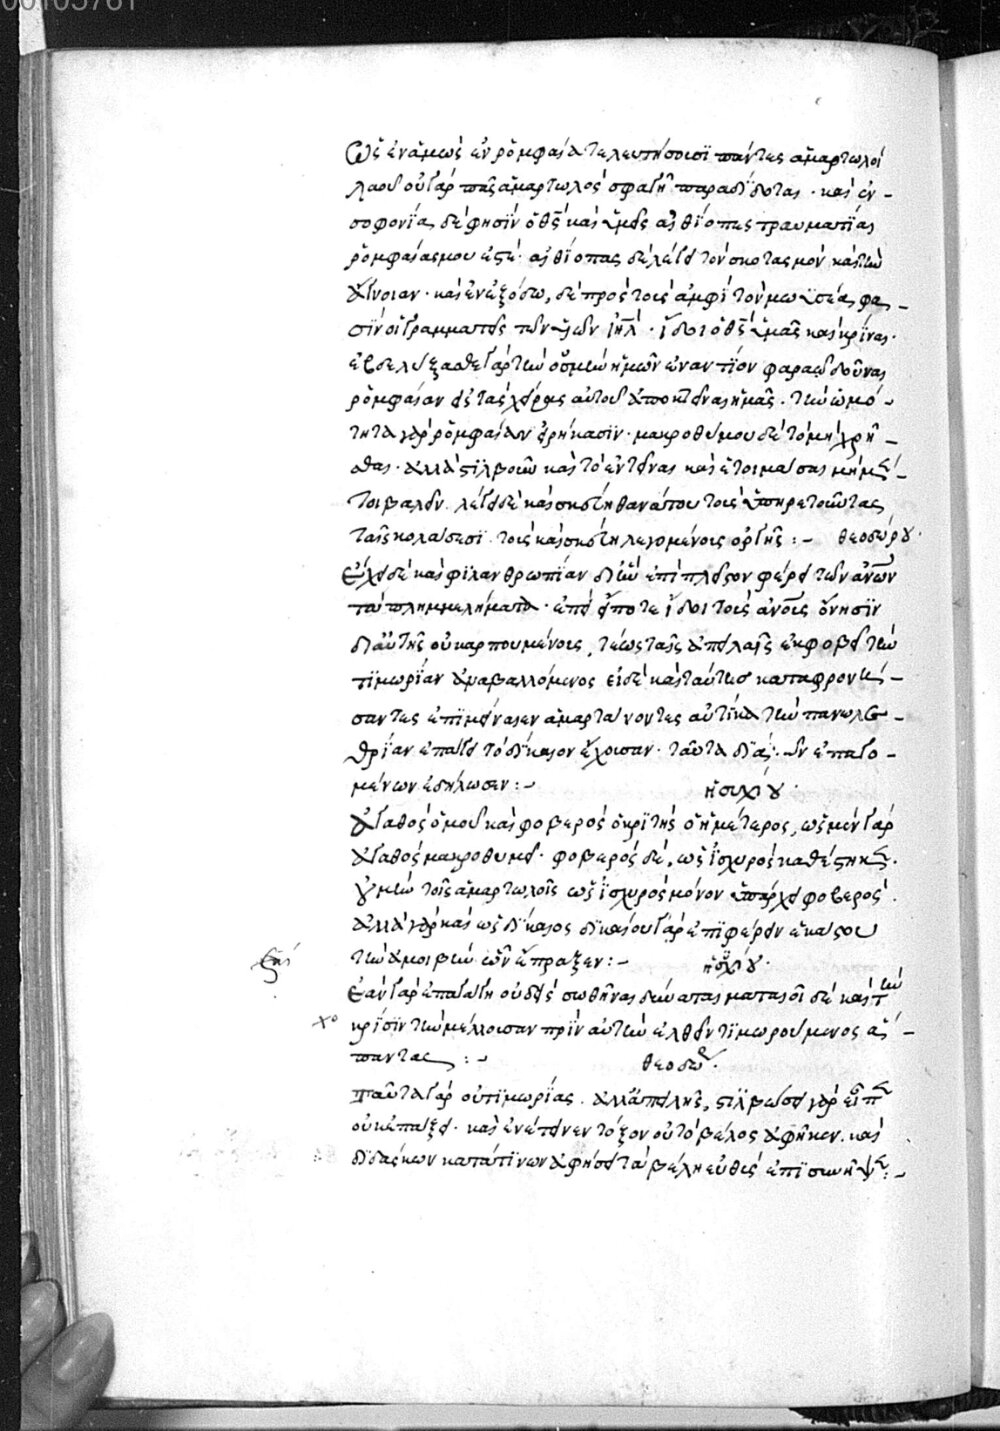 00105761
ὡς ἐν ἀμὼς ἐν ῥομφαία τελευτήσουσι πάντες ἁμαρτωλοὶ
λαοῦ οὐ γὰρ πᾶς ἁμαρτωλὸς σφαγῇ παραδίδοται · καὶ ἐν
σοφονία, δέ φησὶν ὁ θς καὶ ὑμεῖς αἰθίοπες τραυματίαι
ῥομφαίας μου ἐστέ · αἰθίοπας δὲ λέγει τὸν σκοτασμὸν κατὰ τὴν
διάνοιαν · καὶ ἐν ἐξόδω, δὲ πρὸς τοὺς ἀμφὶ τὸν μωϋσέα φα
σὶν οἱ γραμματεῖς τῶν υἱῶν ιηλ · ἴδοι ὁ θς ὑμᾶς καὶ κρίναι ·
ἐβδελύξασθε γὰρ τὴν ὀσμὴν ἡμῶν ἐναντίον φαραὼ δοῦναι
ῥομφαίαν εἰς τὰς χεῖρας αὐτοῦ ἀποκτεῖναι ἡμᾶς · τὴν ὠμό
τητα γὰρ ῥομφαίαν εἰρήκασιν · μακροθύμου δὲ τὸ μὴ χρῆ
σθαι · ἀλλὰ στιλβοῦν καὶ τὸ ἐντεῖναι καὶ ἑτοιμάσαι μὴ μέν
τοι βαλεῖν. λέγει δὲ καὶ σκεύη θανάτου τοὺς ὑπηρετοῦντας
ταῖς κολάσεσι τοῖς καὶ σκεύη λεγομένοις ὀργῆς : θεοδώρου ·
ἔχει δὲ καὶ φιλανθρωπίαν δι' ἣν ἐπιπλεῖστον φέρει τῶν ἀνων
τὰ πλημμελήματα · ἐπεὶ εἴποτε ἴδοι τοὺς ἀνους ὄνησιν
δι' αὐτῆς οὐ καρπουμένους, τέως ταῖς ἀπειλαῖς ἐκφοβεῖ τὴν
τιμωρίαν ἀναβαλλόμενος εἰ δὲ καὶ ταύτης καταφρονή
σαντες ἐπιμείναιεν ἁμαρτάνοντες αὐτίκα τὴν πανωλε
θρίαν ἐπάγει τὸ δίκαιον ἔχουσαν · ταῦτα διὰ τῶν ἐπαγο
μένων ἐδήλωσεν : ἡσυχίου ·
ἀγαθὸς ὁμοῦ καὶ φοβερὸς ὁ κριτὴς ὁ ἡμέτερος, ὡς μὲν γὰρ
ἀγαθὸς μακροθυμεῖ · φοβερὸς δὲ, ὡς ἰσχυρὸς καθέστηκεν ·
οὐ μὴν τοῖς ἁμαρτωλοῖς ὡς ἰσχυρὸς μόνον ὑπάρχει φοβερὸς ·
ἀλλὰ γὰρ καὶ ὡς δίκαιος δικαίου γὰρ ἐπιφέρειν ἑκάστου
τὴν ἀμοιβὴν ὧν ἔπραξεν : ἡσυχίου ·
ἐὰν γὰρ ἐπαγάγῃ οὐδεὶς σωθῆναι δύναται
κρίσιν τὴν μέλλουσαν πρὶν αὐτὴν ἐλθεῖν τιμωρούμενος ἅ
παντας : θεοδώ ·
ταῦτα γὰρ οὐ τιμωρίας · ἀλλ' ἀπειλῆς, στιλβώσει γὰρ εἶπεν
οὐκ ἐπάξει · καὶ ἐνέτεινεν τόξον οὐ τὸ βέλος ἀφῆκεν. καὶ
διδάσκων κατὰ τίνων ἀφήσει τὰ βέλη εὐθὺς ἐπισυνῆψεν :